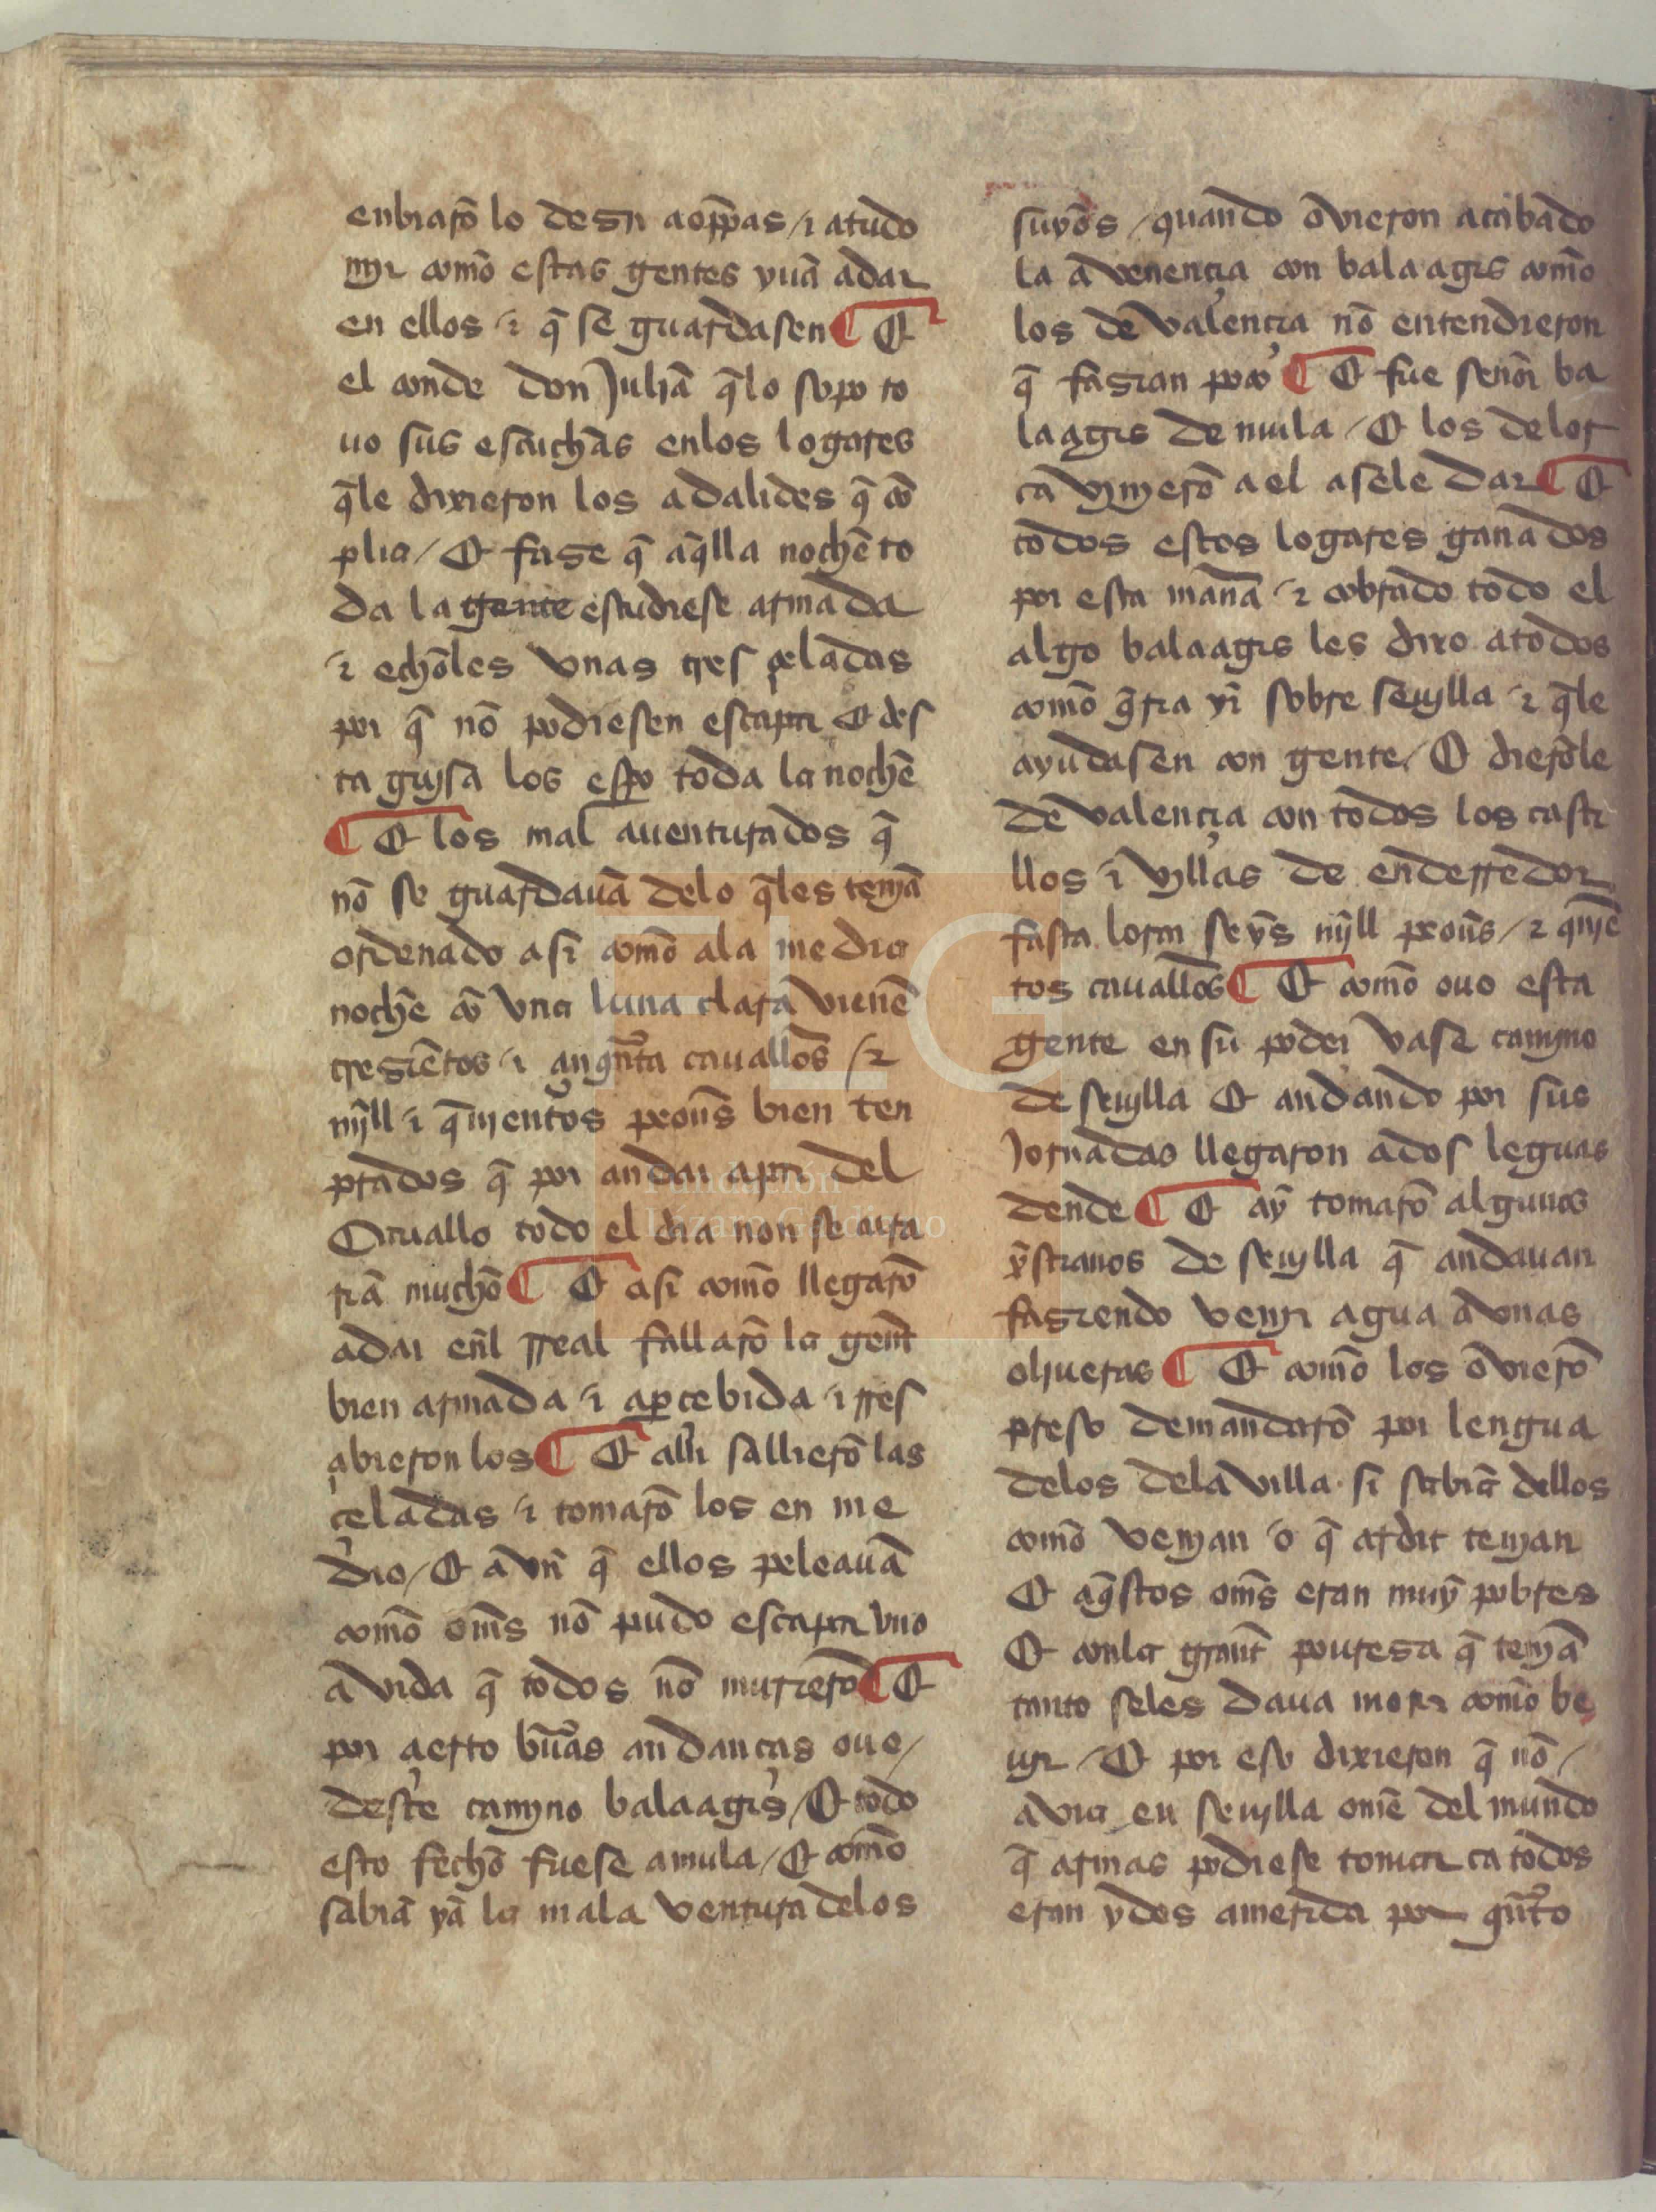 enbiarõ lo desir a opas / ⁊ a tudo
mir com̃o estas gentes yuã a dar
en ellos ⁊ q̃ se guardasen ¶ Et
el conde don Juliã q̃ lo sopo to
uo sus escuchas en los logares
q̃ le dixieron los adalides q̃ cõ
plia / Et fase q̃ aq̃lla noche to
da la gente estudiese armada
⁊ echoles vnas tres çeladas
por q̃ nõ podiesen escapar Et des
ta guisa los espo toda la noche
¶ Et los mal auenturados q̃
nõ se guardauã de lo q̃ les teniã
ordenado asi com̃o a la media
noche cõ vna luna clara vienẽ
tresiẽtos ⁊ çinq̃nta cauallos / ⁊
mill ⁊ q̃inientos peoñs bien ten
prados q̃ por andar a par del
Cauallo todo el dia non se cura
riã mucho ¶ Et asi com̃o llegarõ
a dar eñl rreal fallarõ la gent̃
bien armada ⁊ aperçebida ⁊ rres
çibieron los ¶ Et alli sallierõ las
çeladas ⁊ tomarõ los en me
dio / Et avñ q̃ ellos peleauã
com̃o om̃s nõ pudo escapar vno
a vida q̃ todos nõ murierõ ¶ Et
por çierto bũas andanças oue /
deste camino balaagis / Et todo
esto fecho fuese a mula / Et com̃o
sabiã ya la mala ventura de los
suyos / quando ovieron acabado
la avenençia con balaagis com̃o
los de valençia nõ entendieron
q̃ fasian poco ¶ Et fue señor ba
laagis de mula / Et los de lor
ca vinierõ a el a se le dar ¶ Et
todos estos logares ganados
por esta mañã ⁊ cobrado todo el
algo balaagis les dixo a todos
com̃o q̃ria yr sobre seuylla ⁊ q̃ le
ayudasen con gente / Et dierõle
de valençia con todos los casti
llos ⁊ villas de enderredor
fasta lorca seys mill peoñs / ⁊ q̃niẽ
tos cauallos ¶ Et com̃o ouo esta
gente en su poder vase camino
de seuylla Et andando por sus
Jornadas llegaron a dos leguas
dende ¶ Et ay tomarõ algunos
xp̃stianos de seuylla q̃ andauan
fasiendo venir agua a vnas
oliueras ¶ Et com̃o los ovierõ
preso demandarõ por lengua
de los de la villa si sabiã dellos
com̃o venian o q̃ ardit tenian
Et aq̃stos om̃s eran muy pobres
Et con la grant̃ pouresa q̃ teniã
tanto se les daua morir com̃o be
uir / Et por eso dixieron q̃ nõ /
avia en seuylla om̃e del mundo
q̃ armas podiese tomar ca todos
eran ydos a merida por q̃nto